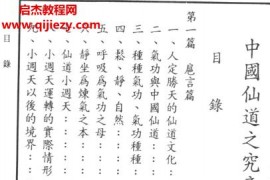 启杰教程网
www.qijiejc.com
中國仙道之究
目錄
第一篇 卮言篇
一、人定勝天的仙道文化：
二、氣功與中國仙道：：
三、種種氣功、氣功種種
四、鬆、靜、自然：：：
五、呼吸為氣功之母：：
六、靜坐為煉氣之本：：
七、仙道小週天：：：
八、小週天運轉的實際情形
九、小週天以後的境界：：
目錄